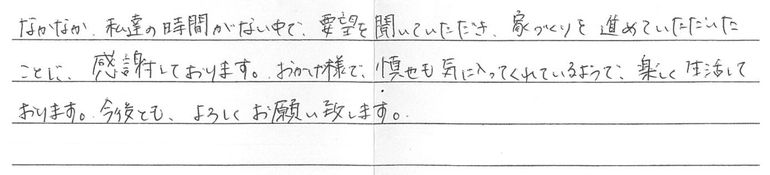 なかなか、私達の時間がない中で、要望を聞いていただき、家づくりを進めていただいた
ことに、感謝しております。おかげ様で、慎也も気に入ってくれているようで、楽しく生活して
おります。今後とも、よろしくお願い致します。